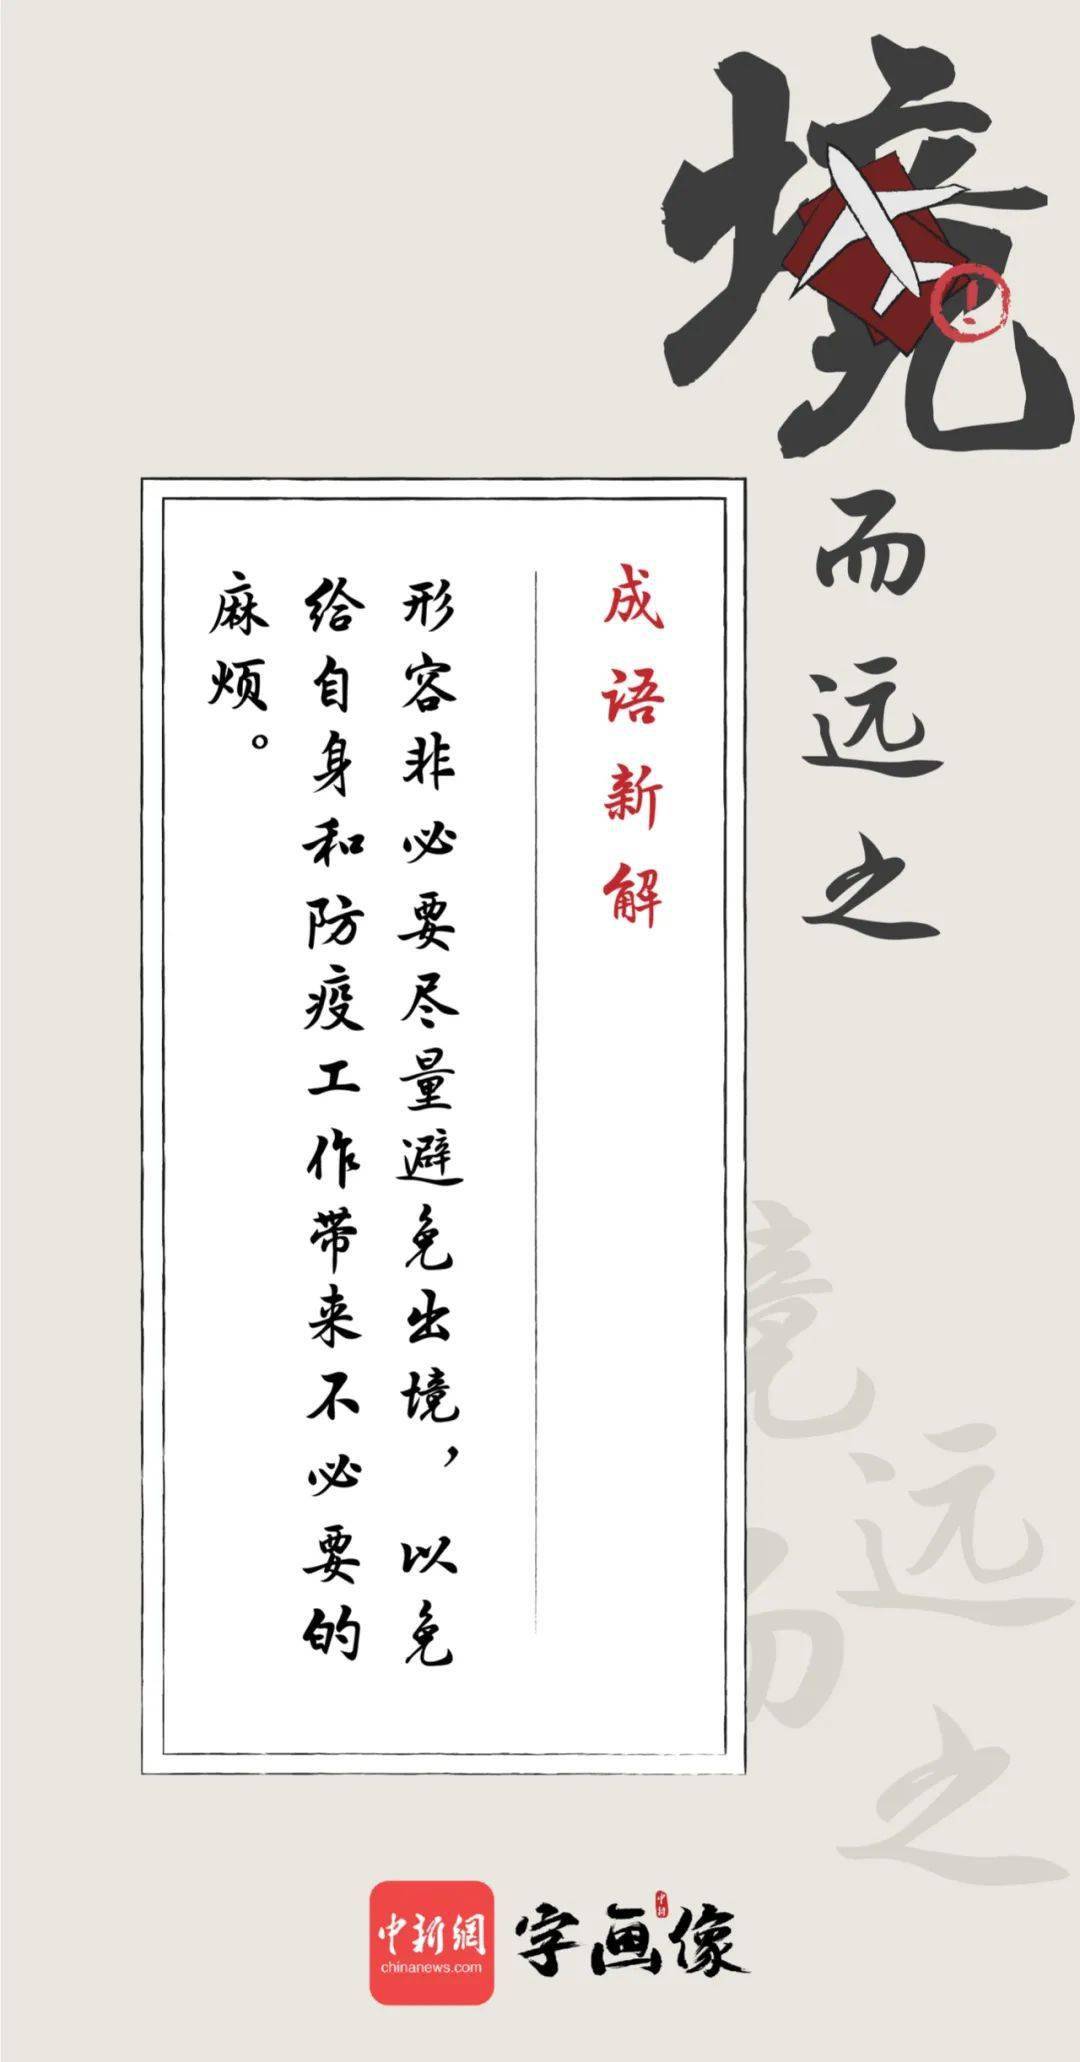 境而远之
成语新解
形容非必要尽量避免出境，以免
给自身和防疫工作带来不必要的
麻烦。
境而
远之
中新網
chinanews.com
字画像